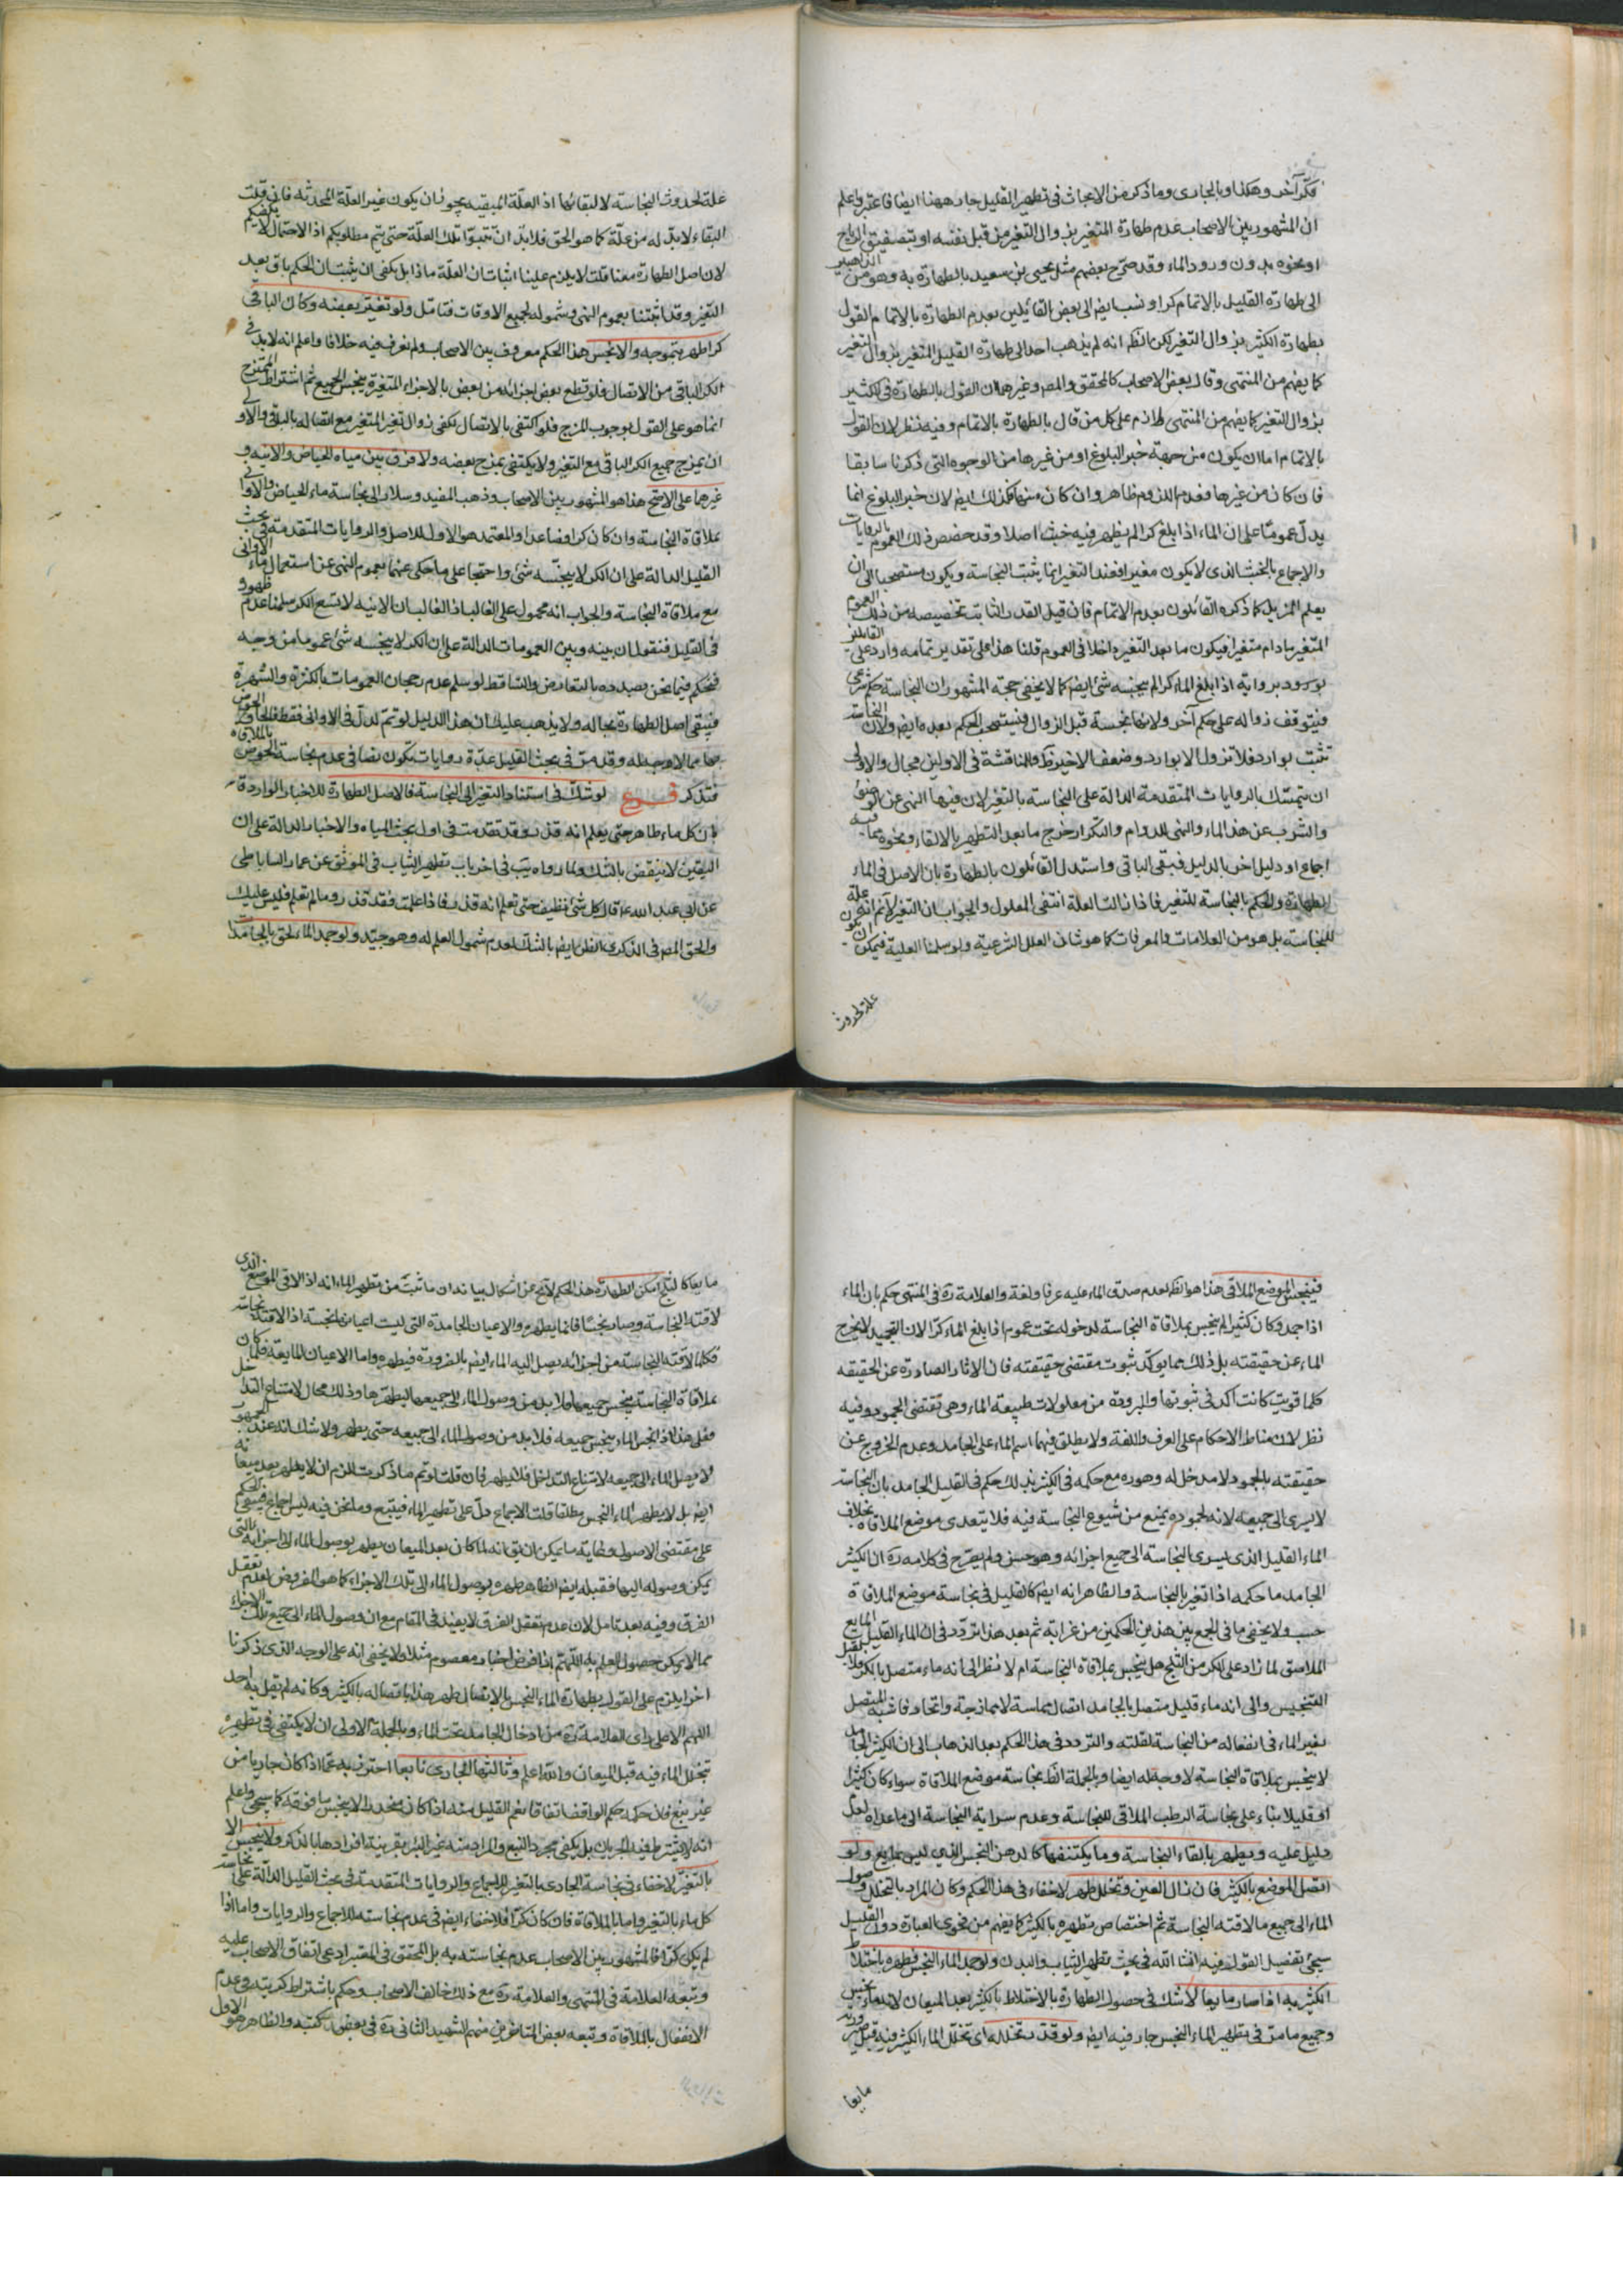 فكرّ آخر وهكذا وبالجارى وما ذكر من الابحاث فى تطهير القليل جار ههنا ايضا فاعتبر واعلم
ان المشهور بين الاصحاب عدم طهارة المتغير بزوال التغير من قبل نفسه او بتصفيق الرياح
او نحوه بدون ورود الماء وقد صرّح بعضهم مثل يحيى بن سعيد بالطهارة به وهو من الذاهبين
الى طهارة القليل بالاتمام كرا ونسب ايضا الى بعض القائلين بعدم الطهارة بالاتمام القول
بطهارة الكثير بزوال التغير لكن الظ انه لم يذهب احد الى طهارة القليل المتغير بزوال التغير
كما يفهم من المنتهى وقال بعض الاصحاب كالمحقق والمصر وغيرهما ان القول بالطهارة فى الكثير
بزوال التغير كما يفهم من المنتهى لازم على كل من قال بالطهارة بالاتمام وفيه نظر لان القول
بالاتمام اما ان يكون من جهة خبر البلوغ او من غيرها من الوجوه التى ذكرنا سابقا
فان كان من غيرها فعدم اللزوم ظاهر وان كان منها فكذلك ايضا لان خبر البلوغ انما
يدل عموما على ان الماء اذا بلغ كرا لم يظهر فيه خبث اصلا وقد خصص ذلك العموم بالروايات
والاجماع بالخبث الذى لا يكون مغيرا فعند التغير انما يثبت النجاسة ويكون مستصحبا الى ان
يعلم المزيل كما ذكره القائلون بعدم الاتمام فان قيل القدر الثابت تخصيصه من ذلك العموم
المتغير ما دام متغيرا فيكون ما بعد التغير داخلا فى العموم قلنا هذا على تقدير تمامه وارد على القائلين
بورود رواية اذا بلغ الماء كرا لم ينجسه شئ ايضا كما لا يخفى حجة المشهور ان النجاسة حكم شرعى
فيتوقف زواله على حكم آخر ولانها نجسة قبل الزوال فيستصحب الحكم بعده ايضا ولان النجاسة
تثبت بوارد فلا تزول الا بوارد وضعف الاخير ظ وللمناقشة فى الاولين مجال والاولى
ان يتمسك بالروايات المتقدمة الدالة على النجاسة بالتغير لان فيها النهى عن الوضوء
والشرب عن هذا الماء والنهى للدوام والتكرار خرج ما بعد التطهير بالالقاء ونحوه مما فيه
اجماع او دليل اخر بالدليل فبقى الباقى واستدل القائلون بالطهارة بان الاصل فى الماء
الطهارة والحكم بالنجاسة للتغير فاذا زالت العلة انتفى المعلول والجواب ان التغير لا نم انه علة
للنجاسة بل هو من العلامات والمعرفات كما هو شان العلل الشرعية ولو سلمنا العلية فيمكن ان تكون
علة لحدوث
علة لحدوث النجاسة لا لبقائها اذ العلة المبقيه يجوز ان يكون غير العلة المحدثه فان قلت
البقاء لا بدّ له من علّة كما هو الحق فلا بدّ ان تثبتوا تلك العلّة حتى يتم مطلوبكم اذ الاحتمال لا يكفيكم
لان اصل الطهارة معنا قلت لا يلزم علينا اثبات ان العلة ماذا بل يكفى ان يثبت ان الحكم باق بعد
التغير وقد اثبتنا بعموم النهى وشموله لجميع الاوقات فتامل ولو تغير بعضه وكان الباقى
كرا طهر بتموجه والا نجس هذا الحكم معروف بين الاصحاب ولم نعرف فيه خلافا واعلم انه لا بد فى
الكر الباقى من الاتصال فلو قطع بعض اجزائه من بعض بالاجزاء المتغيرة ينجس الجميع ثم اشتراط التموج
انما هو على القول بوجوب المزج فلو اكتفى بالاتصال يكفى زوال تغير المتغير مع اتصاله بالباقى والاولى
ان يمزج جميع الكر الباقى مع التغير ولا يكتفى بمزج بعضه ولا فرق بين مياه الحياض والانيه و
غيرها على الاصح هذا هو المشهور بين الاصحاب وذهب المفيد وسلار الى نجاسة ماء الحياض والاوانى
بملاقاة النجاسة وان كان كرا فصاعدا والمعتمد هو الاول للاصل والروايات المتقدمة فى بحث
القليل الدالة على ان الكر لا ينجسه شئ واحتجا على ما حكى عنهما بعموم النهى عن استعمال ماء الاوانى
مع ملاقاة النجاسة والجواب انه محمول على الغالب اذ الغالب ان الانيه لا تسع الكر سلمنا عدم ظهوره
فى القليل فنقول ان بينه وبين العمومات الدالة على ان الكر لا ينجسه شئ عموما من وجه
فنحكم فيما نحن بصدده بالتعارض والتساقط لو سلم عدم رجحان العمومات بالكثرة والشهرة
فيبقى اصل الطهارة بحاله ولا يذهب عليك ان هذا الدليل لو تم لدل فى الاوانى فقط فالحاق الحوض
بها مما لا وجه له وقد مرّ فى بحث القليل عدّة روايات يكون نصا فى عدم نجاسة الحوض بالملاقاة
فتذكر فرع لو شك فى استناد التغير الى النجاسة فالاصل الطهارة للاخبار الواردة
بان كل ماء طاهر حتى يعلم انه قذر وقد تقدمت فى اول بحث المياه والاخبار الدالة على ان
اليقين لا ينقض بالشك ولما رواه يب فى اخر باب تطهير الثياب فى الموثق عن عمار الساباطى
عن ابى عبد الله ع قال كل شئ نظيف حتى تعلم انه قذر فاذا علمت فقد قذر وما لم تعلم فليس عليك
والحق المصر فى الذكرى الظن ايضا بالشك لعدم شمول العلم له وهو جيد ولو جمد الماء لحق بالجامدات
فينجس الموضع الملاقى هذا هو الظ لعدم صدق الماء عليه عرفا ولغة والعلامة ره فى المنتهى حكم بان الماء
اذا جمد وكان كثيرا لم ينجس بملاقاة النجاسة لدخوله تحت عموم اذا بلغ الماء كرّا لان التجميد لا يخرج
الماء عن حقيقته بل ذلك مما يوكّد ثبوت مقتضى حقيقته فان الاثار الصادرة عن الحقيقه
كلما قويت كانت آكد فى ثبوتها والبرودة من معلولات طبيعة الماء وهى تقتضى الجمود وفيه
نظر لان مناط الاحكام على العرف واللغة ولا يطلق فيهما اسم الماء على الجامد وعدم الخروج عن
حقيقته بالجمود لا مدخل له وهو ره مع حكمه فى الكثير بذلك حكم فى القليل الجامد بان النجاسة
لا يسرى الى جميعه لانه لجموده يمنع من شيوع النجاسة فيه فلا يتعدى موضع الملاقاة بخلاف
الماء القليل الذى يسرى النجاسة الى جميع اجزائه وهو حسن ولم يصرح فى كلامه ره ان الكثير
الجامد ما حكمه اذا تغير بالنجاسة والظاهر انه ايضا كالقليل فى نجاسة موضع الملاقاة
حسب ولا يخفى ما فى الجمع بين هذين الحكمين من غرابة ثم بعد هذا تردد فى ان الماء القليل المايع
الملاصق لما زاد على الكر من الثلج هل ينجس بملاقاة النجاسة ام لا نظرا الى انه ماء متصل بالكر فلا يقبل
التنجيس والى انه ماء قليل متصل بالجامد اتصال مماسة لا ممازجة واتحاد فاشبه المتصل
بغير الماء فى انفعاله من النجاسة لقلته والتردد فى هذا الحكم بعد الذهاب الى ان الكثير الجامد
لا ينجس بملاقاة النجاسة لا وجه له ايضا وبالجملة الظ نجاسة موضع الملاقاة سواء كان كثيرا
او قليلا بناء على نجاسة الرطب الملاقى للنجاسة وعدم سراية النجاسة الى ما عداه لعدم
دليل عليه ويطهر بالقاء النجاسة وما يكتنفها كالدهن النجس الذى ليس بمايع ولو
اتصل الموضع بالكثير فان زال العين وتخلل طهر لا خفاء فى هذا الحكم وكان المراد بالتخلل وصول
الماء الى جميع ما لاقته النجاسة ثم اختصاص تطهيره بالكثير كما يفهم من فحوى العبارة دون القليل
سيجئ تفصيل القول فيه انشا الله فى بحث تطهير الثياب والبدن ولو جمد الماء النجس فطهره باختلاط
الكثير به اذا صار مايعا لا شك فى حصول الطهارة بالاختلاط بالكثير بعد الميعان لانه ماء نجس
وجميع ما مرّ فى تطهير الماء النجس جار فيه ايضا ولو قدر تخلله اى تخلل الماء الكثير فيه قبل صيرورته
مايعا
مايعا كالثلج امكن الطهارة هذا الحكم لا يخ عن اشكال بيانه ان ما ثبت من تطهير الماء انه اذا لاقى الموضع الذى
لاقته النجاسة وصار نجسا فانما يطهره والاعيان الجامدة التى ليست اعيانها نجسة اذا لاقتها نجاسة
فكلما لاقته النجاسة من اجزائه يصل اليه الماء ايضا بالضرورة فيطهره واما الاعيان المايعة فلما كان
بملاقاة النجاسة ينجس جميعها فلا بد من وصول الماء الى جميعها ليطهرها وذلك محال لامتناع التداخل
فعلى هذا اذا نجس الماء ينجس جميعه فلا بد من وصول الماء الى جميعه حتى يطهر ولا شك انه عند الجمود
لا يصل الماء الى جميعه لامتناع التداخل فلا يطهر فان قلت لو تم ما ذكرت للزم ان لا يطهر بعد ميعانه
ايضا بل لا يطهر الماء النجس مطلقا قلت الاجماع دلّ على تطهير الماء فيتبع وما نحن فيه ليس اجماع فيبقى الحكم
على مقتضى الاصول وغاية ما يمكن ان يق انه لما كان بعد الميعان يطهر بوصول الماء الى اجزائه التى
يمكن وصوله اليها فقبله ايضا الظاهر طهره بوصول الماء الى تلك الاجزاء كما هو المفروض لعدم تعقل
الفرق وفيه بعد تامل لان عدم تعقل الفرق لا يفيد فى المقام مع ان وصول الماء الى جميع تلك الاجزاء
مما لا يمكن حصول العلم به اللهم الا اذا فرض اخبار معصوم مثلا ولا يخفى انه على الوجه الذى ذكرنا
اخرا يلزم على القول بطهارة الماء النجس بالاتصال طهر هذا باتصاله بالكثير وكانه لم يقل به احد
اللهم الا على راى العلامة ره من ادخال الجامد تحت الماء وبالجملة الاولى ان لا يكتفى فى تطهيره
بتخلل الماء فيه قبل الميعان والله اعلم وثالثها الجارى نابعا احترز به عما اذا كان جاريا من
غير نبع فان حكمه حكم الواقف اتفاقا نعم القليل منه اذا كان منحدرا لا ينجس ما فوقه كما سيجئ واعلم
انه لا يشترط فيه الجريان بل يكفى مجرد النبع والمراد منه غير البئر بقرينة افرادها بالذكر ولا ينجس الا
بالتغير لا خفاء فى نجاسة الجارى بالتغير للاجماع والروايات المتقدمة فى بحث القليل الدالة على نجاسة
كل ماء بالتغير واما بالملاقاة فان كان كرّا فلا خفاء ايضا فى عدم نجاسته للاجماع والروايات واما اذا
لم يكن كرّا فالمشهور بين الاصحاب عدم نجاسته به بل المحقق فى المعتبر ادعى اتفاق الاصحاب عليه
وتبعه العلامة فى المنتهى والعلامة ره مع ذلك خالف الاصحاب وحكم باشتراط كريته فى عدم
الانفعال بالملاقاة وتبعه بعض المتاخرين منهم الشهيد الثانى ره فى بعض كتبه والظاهر هو الاول